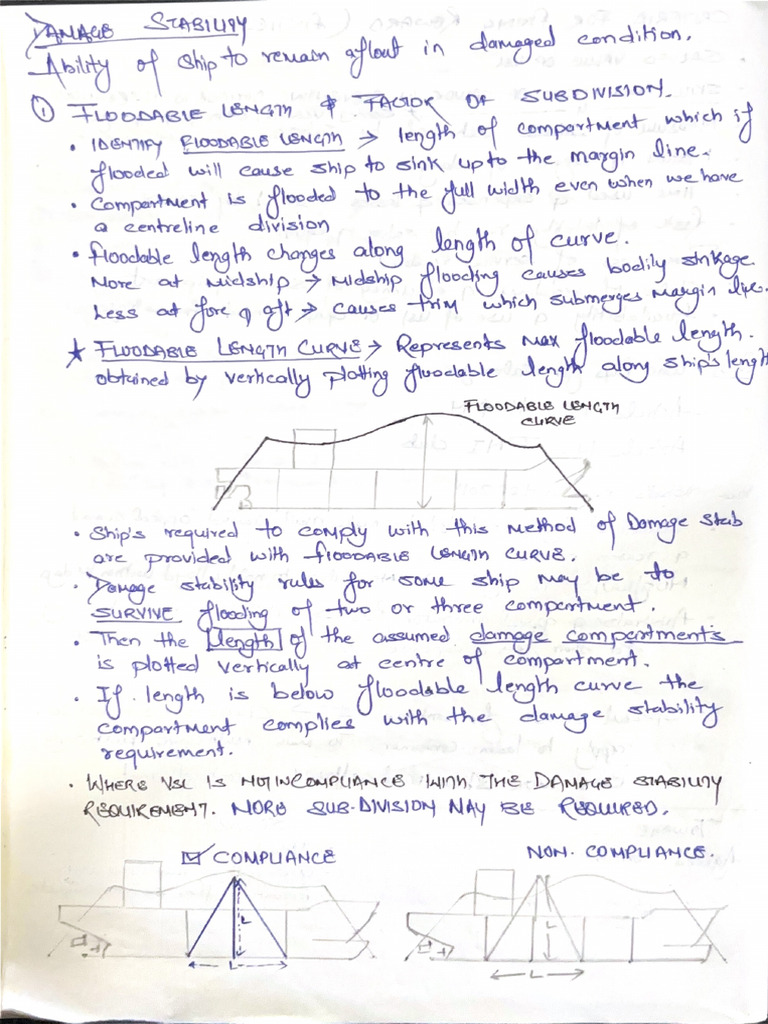 DAMAGE STABILITY
Ability of ship to remain afloat in damaged condition.
① FLOODABLE LENGTH & FACTOR OF SUBDIVISION.
• IDENTIFY FLOODABLE LENGTH → length of compartment which if
flooded will cause ship to sink upto the margin line.
• Compartment is flooded to the full width even when we have
a centreline division
• floodable length changes along length of curve.
More at Midship → Midship flooding causes bodily sinkage
Less at fore & aft → causes trim which submerges Margin line.
★ FLOODABLE LENGTH CURVE → Represents Max floodable length.
obtained by vertically plotting floodable length along ship's length
FLOODABLE LENGTH
CURVE
• Ship's required to comply with this Method of Damage Stab
are provided with FLOODABLE LENGTH CURVE.
• Damage stability rules for some ship may be to
SURVIVE flooding of two or three compartment.
• Then the length of the assumed damage compartments
is plotted vertically at centre of compartment.
• If length is below floodable length curve the
compartment complies with the damage stability
requirement.
• WHERE VSL IS NOT IN COMPLIANCE WITH THE DAMAGE STABILITY
REQUIREMENT. MORE SUB-DIVISION MAY BE REQUIRED.
☑ COMPLIANCE NON. COMPLIANCE.
L L
L L